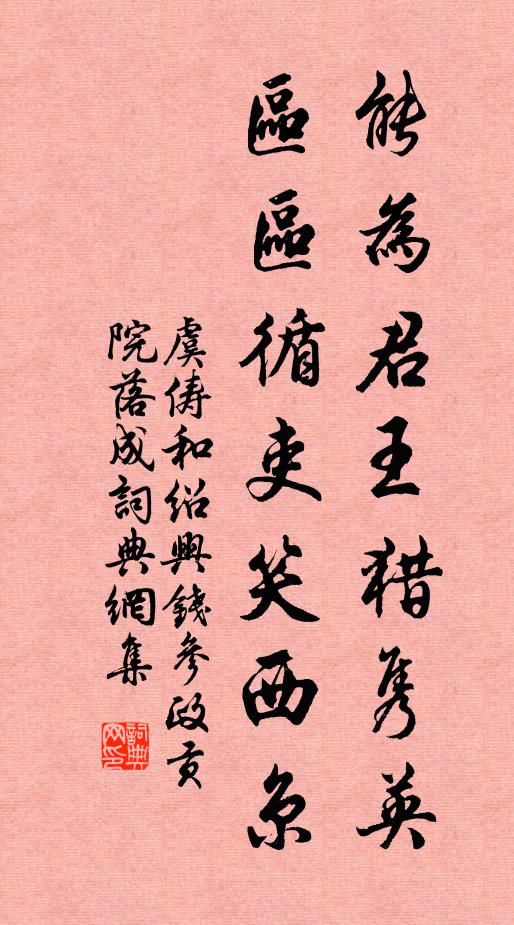 能為君王猎隽英
區區循吏笑西京
虞俦和绍興錢參政贡
院落成詞典網集
詞典网印